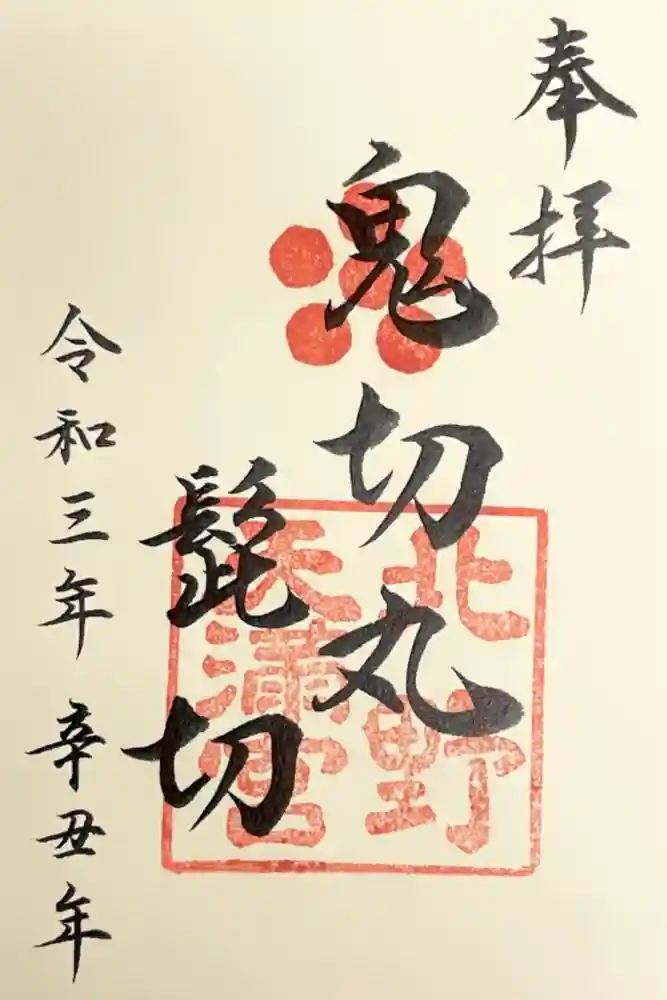 奉拝
鬼切丸
髭切
北野
天満宮
令和三年 辛丑年